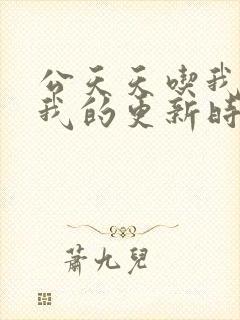 公天天喫我
我的更新時
蕭九兒